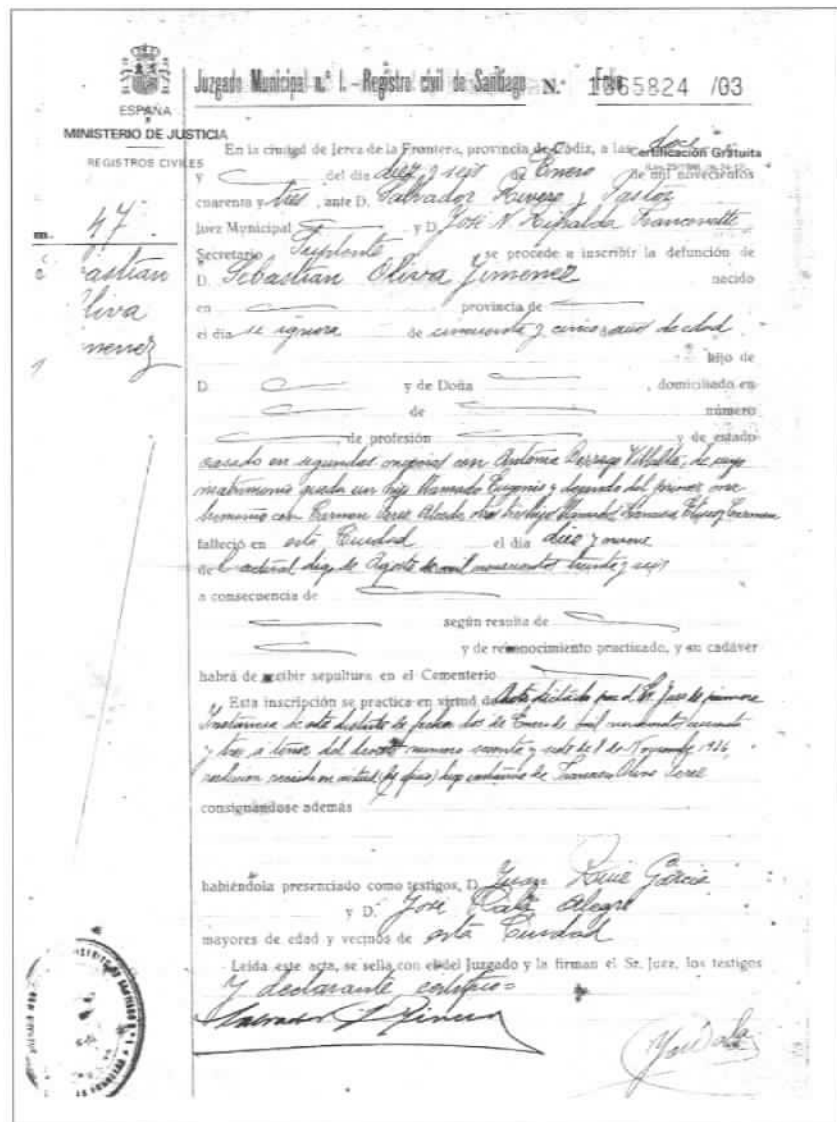 Juzgado Municipal n.º 1. - Registro civil de Santiago N.º 1865824 /03
Folio
ESPAÑA
MINISTERIO DE JUSTICIA
REGISTROS CIVILES
Certificación Gratuita
En la ciudad de Jerez de la Frontera, provincia de Cádiz, a las doce
y del día diez y seis de Enero de mil novecientos
cuarenta y tres, ante D. Salvador Rivero y Pastor
Juez Municipal y D. José N.
Secretario Suplente se procede a inscribir la defunción de
D. Sebastian Oliva Jimenez nacido
47
en provincia de
el día se ignora de cincuenta y cinco años de edad
hijo de
D. y de Doña , domiciliado en
de número
, de profesión y de estado
casado en segundas nupcias con Antonia Villalta, de cuyo
matrimonio queda un hijo llamado Eugenio y dejando del primer ma
trimonio con Carmen Perez
falleció en esta Ciudad el día diez y nueve
de l actual digo de Agosto de mil novecientos treinta y seis
a consecuencia de
según resulta de
y de reconocimiento practicado, y su cadáver
habrá de recibir sepultura en el Cementerio
Esta inscripción se practica en virtud de Auto dictado por el Sr. Juez de primera
Instancia de este distrito de fecha dos de Enero de mil novecientos cuarenta
y tres a tenor del decreto numero sesenta y siete de 8 de Noviembre 1936,
de Francisco Oliva Perez
consignándose además
habiéndola presenciado como testigos, D. Juan Ruiz García
y D. José Alegre
mayores de edad y vecinos de esta Ciudad
Leída este acta, se sella con el del Juzgado y la firman el Sr. Juez, los testigos
y declarante certifico=
Salvador Rivero